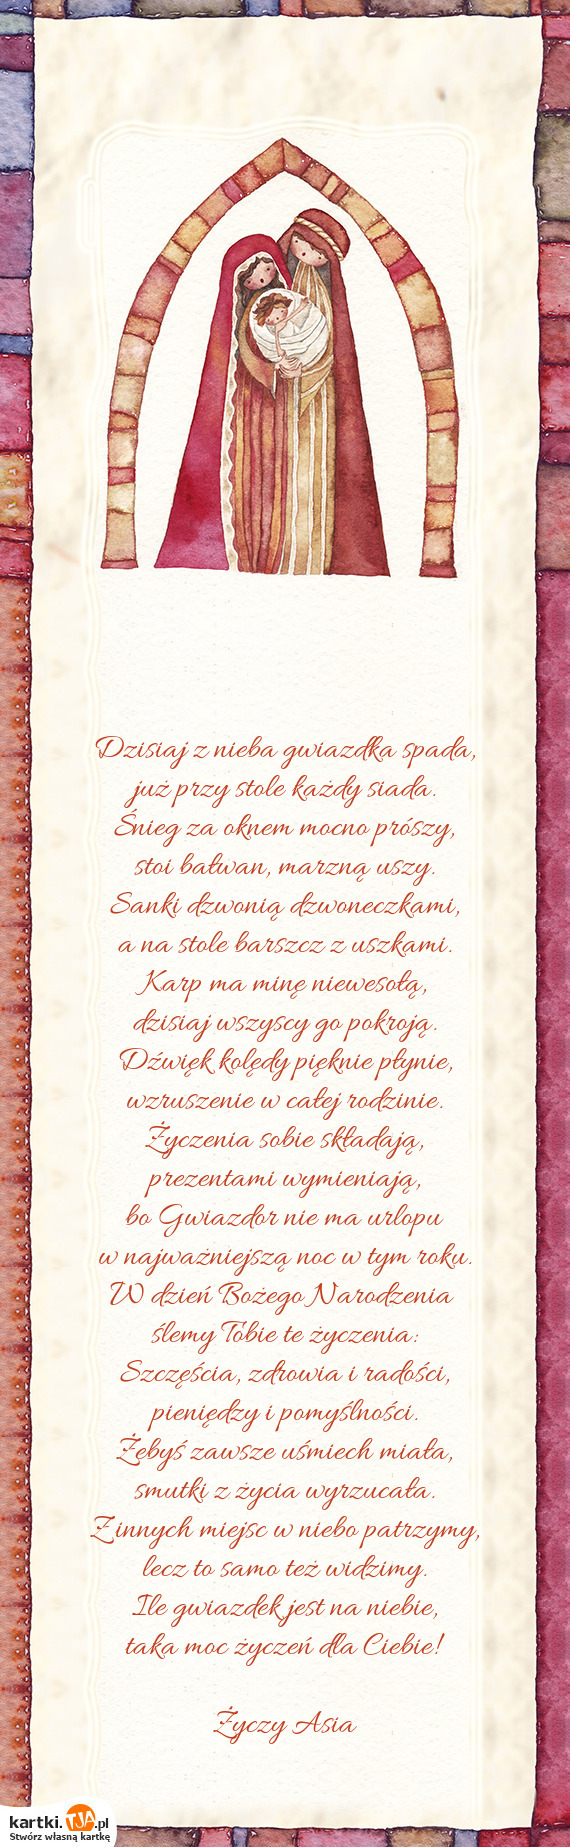 Dzisiaj z nieba gwiazdka spada,
już przy stole każdy siada.
Śnieg za oknem mocno prószy,
stoi bałwan, marzną uszy.
Sanki dzwonią dzwoneczkami,
a na stole barszcz z uszkami.
Karp ma minę niewesołą,
dzisiaj wszyscy go pokroją.
Dźwięk kolędy pięknie płynie,
wzruszenie w całej rodzinie.
Życzenia sobie składają,
prezentami wymieniają,
bo Gwiazdor nie ma urlopu
w najważniejszą noc w tym roku.
W dzień Bożego Narodzenia
ślemy Tobie te życzenia:
Szczęścia, zdrowia i radości,
pieniędzy i pomyślności.
Żebyś zawsze uśmiech miała,
smutki z życia wyrzucała.
Z innych miejsc w niebo patrzymy,
lecz to samo też widzimy.
Ile gwiazdek jest na niebie,
taka moc życzeń dla Ciebie!
Życzy Asia
kartki.TJA.pl
Stwórz własną kartkę